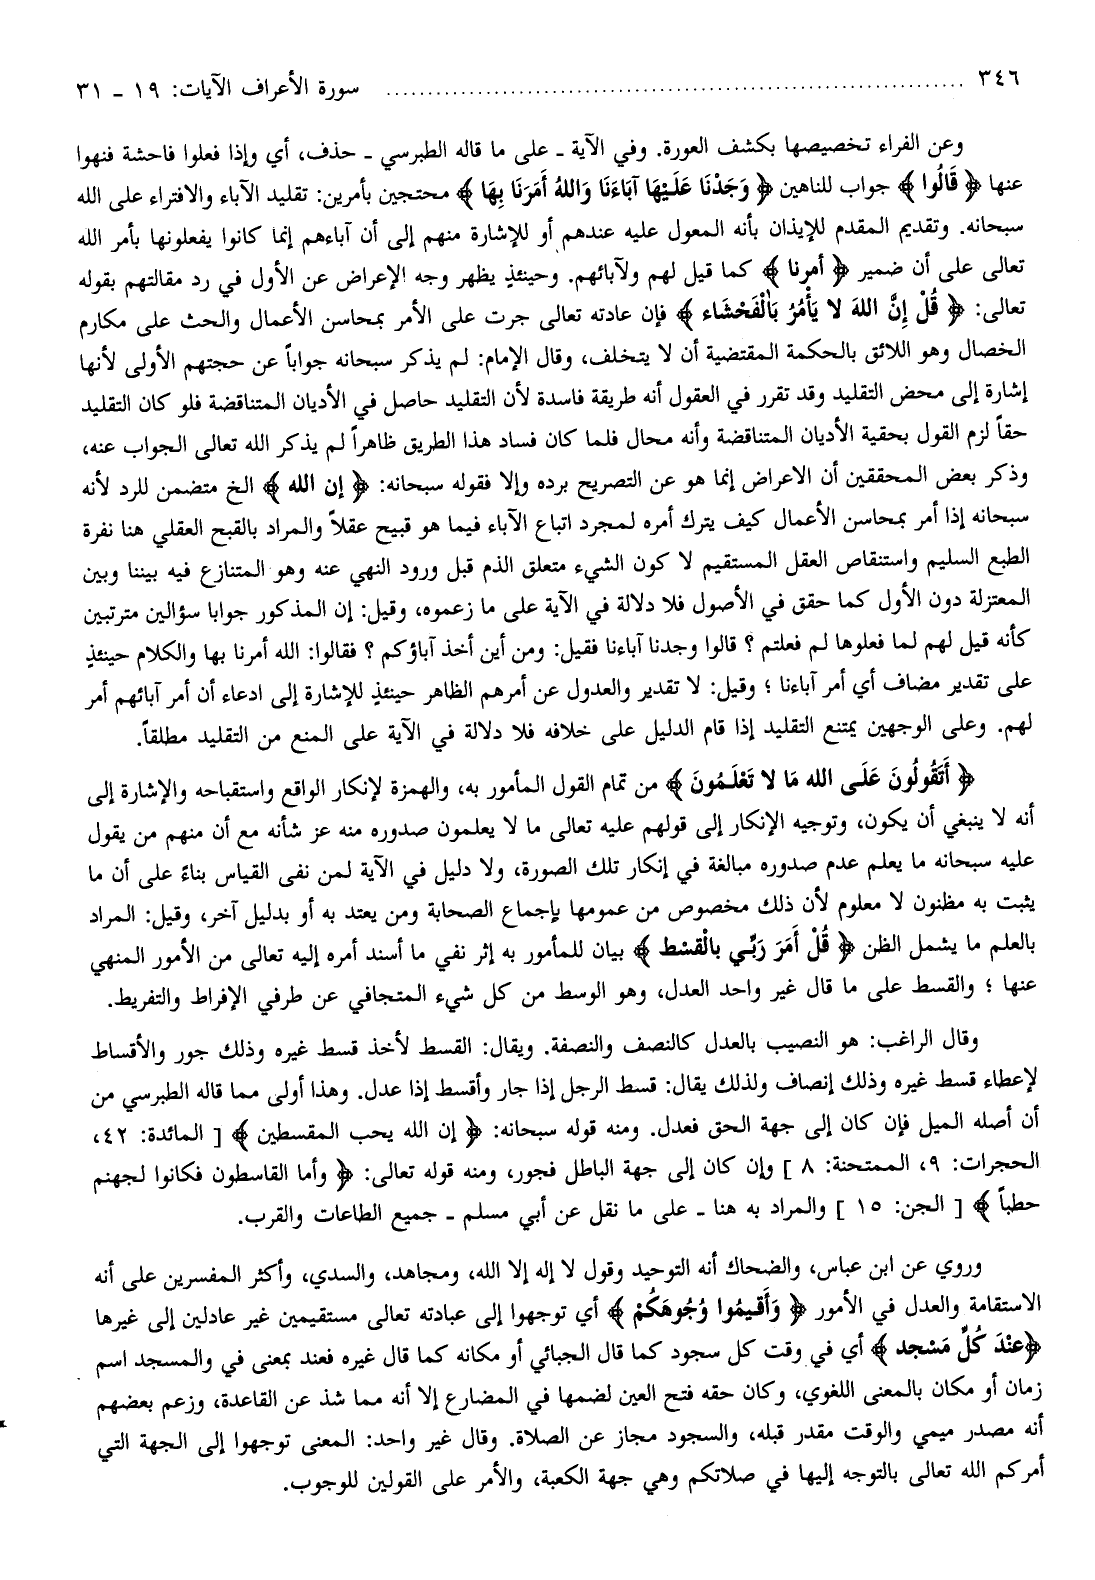 ٣٤٦ ........................................................ سورة الأعراف الآيات: ١٩ ـ ٣١
وعن الفراء تخصيصها بكشف العورة. وفي الآية ـ على ما قاله الطبرسي ـ حذف، أي وإذا فعلوا فاحشة فنهوا
عنها ﴿ قَالُوا ﴾ جواب للناهين ﴿ وَجَدْنَا عَلَيْهَا آبَاءَنَا وَاللهُ أَمَرَنَا بِهَا ﴾ محتجين بأمرين: تقليد الآباء والافتراء على الله
سبحانه. وتقديم المقدم للإيذان بأنه المعول عليه عندهم أو للإشارة منهم إلى أن آباءهم إنما كانوا يفعلونها بأمر الله
تعالى على أن ضمير ﴿ أمرنا ﴾ كما قيل لهم ولآبائهم. وحينئذٍ يظهر وجه الإعراض عن الأول في رد مقالتهم بقوله
تعالى: ﴿ قُلْ إِنَّ اللهَ لا يَأْمُرُ بَالْفَحْشَاء ﴾ فإن عادته تعالى جرت على الأمر بمحاسن الأعمال والحث على مكارم
الخصال وهو اللائق بالحكمة المقتضية أن لا يتخلف، وقال الإمام: لم يذكر سبحانه جواباً عن حجتهم الأولى لأنها
إشارة إلى محض التقليد وقد تقرر في العقول أنه طريقة فاسدة لأن التقليد حاصل في الأديان المتناقضة فلو كان التقليد
حقاً لزم القول بحقية الأديان المتناقضة وأنه محال فلما كان فساد هذا الطريق ظاهراً لم يذكر الله تعالى الجواب عنه،
وذكر بعض المحققين أن الاعراض إنما هو عن التصريح برده وإلا فقوله سبحانه: ﴿ إن الله ﴾ الخ متضمن للرد لأنه
سبحانه إذا أمر بمحاسن الأعمال كيف يترك أمره لمجرد اتباع الآباء فيما هو قبيح عقلاً والمراد بالقبح العقلي هنا نفرة
الطبع السليم واستنقاص العقل المستقيم لا كون الشيء متعلق الذم قبل ورود النهي عنه وهو المتنازع فيه بيننا وبين
المعتزلة دون الأول كما حقق في الأصول فلا دلالة في الآية على ما زعموه، وقيل: إن المذكور جوابا سؤالين مترتبين
كأنه قيل لهم لما فعلوها لم فعلتم ؟ قالوا وجدنا آباءنا فقيل: ومن أين أخذ آباؤكم ؟ فقالوا: الله أمرنا بها والكلام حينئذٍ
على تقدير مضاف أي أمر آباءنا ؛ وقيل: لا تقدير والعدول عن أمرهم الظاهر حينئذٍ للإشارة إلى ادعاء أن أمر آبائهم أمر
لهم. وعلى الوجهين يمتنع التقليد إذا قام الدليل على خلافه فلا دلالة في الآية على المنع من التقليد مطلقاً.
﴿ أَتَقُولُونَ عَلَى الله مَا لا تَعْلَمُونَ ﴾ من تمام القول المأمور به، والهمزة لإنكار الواقع واستقباحه والإشارة إلى
أنه لا ينبغي أن يكون، وتوجيه الإنكار إلى قولهم عليه تعالى ما لا يعلمون صدوره منه عز شأنه مع أن منهم من يقول
عليه سبحانه ما يعلم عدم صدوره مبالغة في إنكار تلك الصورة، ولا دليل في الآية لمن نفى القياس بناءً على أن ما
يثبت به مظنون لا معلوم لأن ذلك مخصوص من عمومها بإجماع الصحابة ومن يعتد به أو بدليل آخر، وقيل: المراد
بالعلم ما يشمل الظن ﴿ قُلْ أَمَرَ رَبِّي بالْقسْط ﴾ بيان للمأمور به إثر نفي ما أسند أمره إليه تعالى من الأمور المنهي
عنها ؛ والقسط على ما قال غير واحد العدل، وهو الوسط من كل شيء المتجافي عن طرفي الإفراط والتفريط.
وقال الراغب: هو النصيب بالعدل كالنصف والنصفة. ويقال: القسط لأخذ قسط غيره وذلك جور والأقساط
لإعطاء قسط غيره وذلك إنصاف ولذلك يقال: قسط الرجل إذا جار وأقسط إذا عدل. وهذا أولى مما قاله الطبرسي من
أن أصله الميل فإن كان إلى جهة الحق فعدل. ومنه قوله سبحانه: ﴿ إن الله يحب المقسطين ﴾ [ المائدة: ٤٢،
الحجرات: ٩، الممتحنة: ٨ ] وإن كان إلى جهة الباطل فجور، ومنه قوله تعالى: ﴿ وأما القاسطون فكانوا لجهنم
حطباً ﴾ [ الجن: ١٥ ] والمراد به هنا ـ على ما نقل عن أبي مسلم ـ جميع الطاعات والقرب.
وروي عن ابن عباس، والضحاك أنه التوحيد وقول لا إله إلا الله، ومجاهد، والسدي، وأكثر المفسرين على أنه
الاستقامة والعدل في الأمور ﴿ وَأَقيمُوا وُجُوهَكُمْ ﴾ أي توجهوا إلى عبادته تعالى مستقيمين غير عادلين إلى غيرها
﴿عنْدَ كُلِّ مَسْجد ﴾ أي في وقت كل سجود كما قال الجبائي أو مكانه كما قال غيره فعند بمعنى في والمسجد اسم
زمان أو مكان بالمعنى اللغوي، وكان حقه فتح العين لضمها في المضارع إلا أنه مما شذ عن القاعدة، وزعم بعضهم
أنه مصدر ميمي والوقت مقدر قبله، والسجود مجاز عن الصلاة. وقال غير واحد: المعنى توجهوا إلى الجهة التي
أمركم الله تعالى بالتوجه إليها في صلاتكم وهي جهة الكعبة، والأمر على القولين للوجوب.